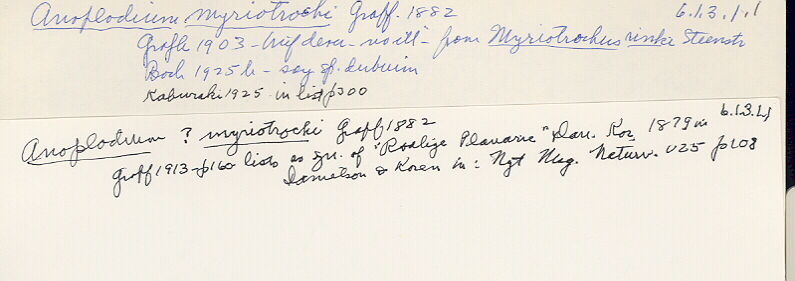 Anoplodium myriotrochi Graff. 1882 6.1.3.1.1
Graff 1903 - brief descr - no ill - from Myriotrochus rinkii Steenstr
Bock 1925 b - say sp. dubium
Kaburaki 1925 in list p300
Anoplodium ? myriotrochi Graff 1882 6.1.3.1.1
Graff 1913 - p160 lists as syn. of "Rodlige Planarie" Dan. Kor 1879 in
Danielson & Koren in: Nyt Mag. Naturv. v25 p108